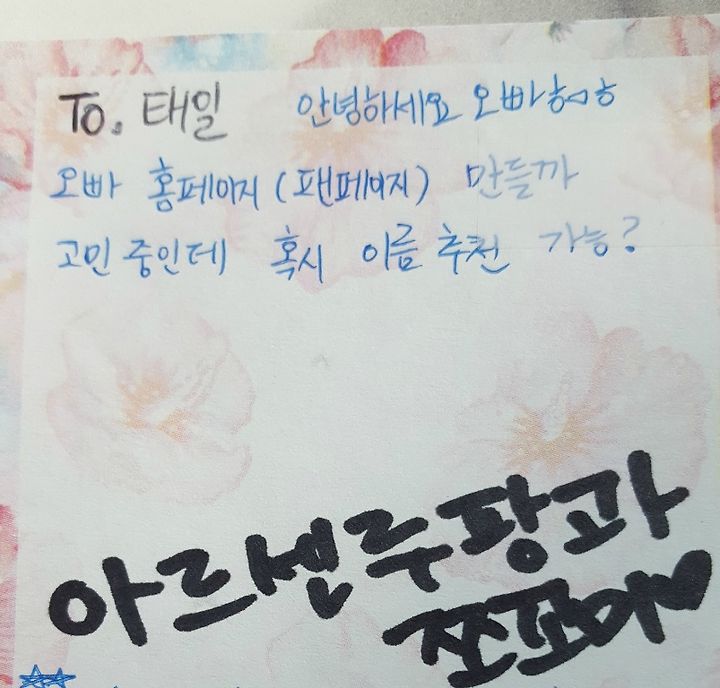 To. 태일 안녕하세요 오빠ㅎㅁㅎ
오빠 홈페이지 (팬페이지) 만들까
고민 중인데 혹시 이름 추천 가능?
아르센루팡과
쪼꼬미♥